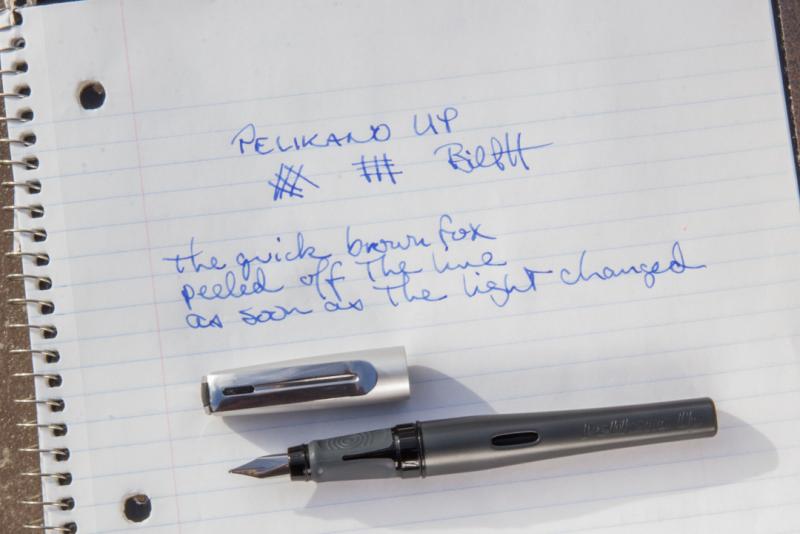 PELIKANO UP
the quick brown fox
peeled off the line
as soon as the light changed